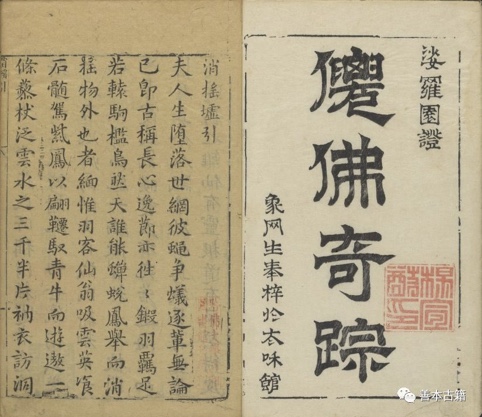 娑羅園證
僊佛奇踪
象网生奉梓於太味館
消搖墟引
夫人生墮落世網彼蠅爭蟻逐輩無論
已即古稱長心逸節亦徃〻鎩羽羈足
若轅駒檻鳥然夫誰能蟬蛻鳳舉而消
搖物外也者緬惟羽客仙翁吸雲英飡
石髓駕紫鳳以翩躚馭青牛而遊遨一
條藜杖泛雲水之三千半片衲衣訪洞
善本古籍